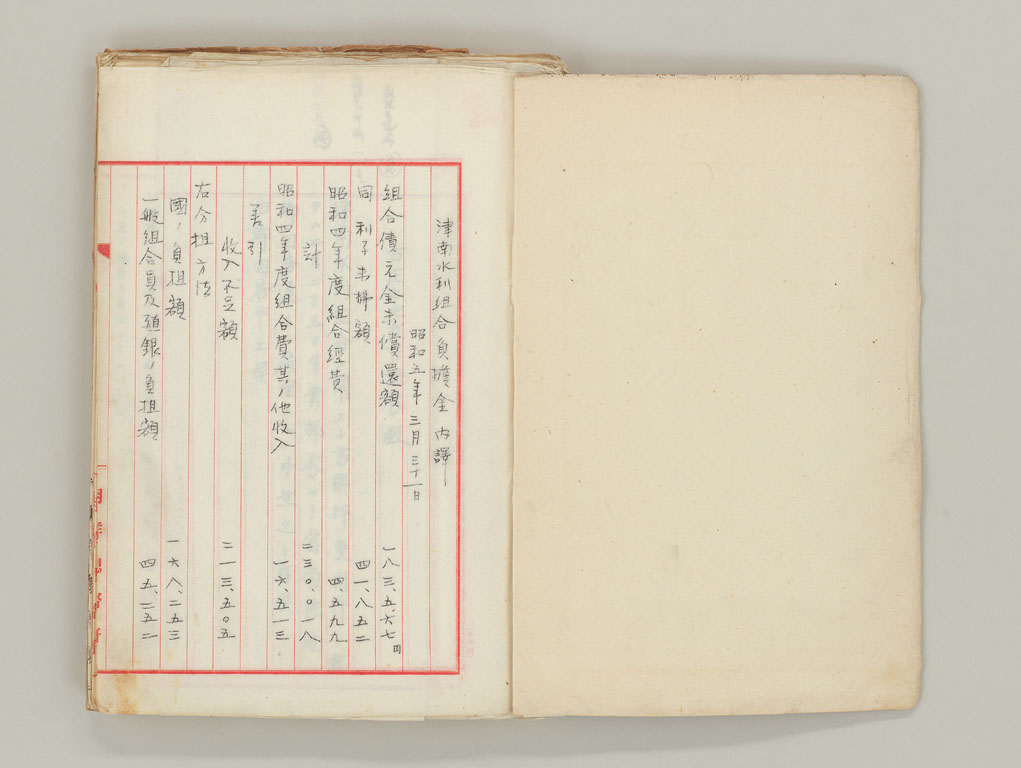 津南水利組合負擔金内譯
昭和五年三月三十一日
組合債元金未償還額 一八三、五六七円
同 利子未拂額 四一、八五二
昭和四年度組合經費 四、五九九
計 二三〇、〇一八
昭和四年度組合費其ノ他收入 一六、五一三
差引
收入不足額 二一三、五〇五
右分担方法
國ノ負担額 一六八、二五三
一般組合員及殖銀ノ負担額 四五、二五二